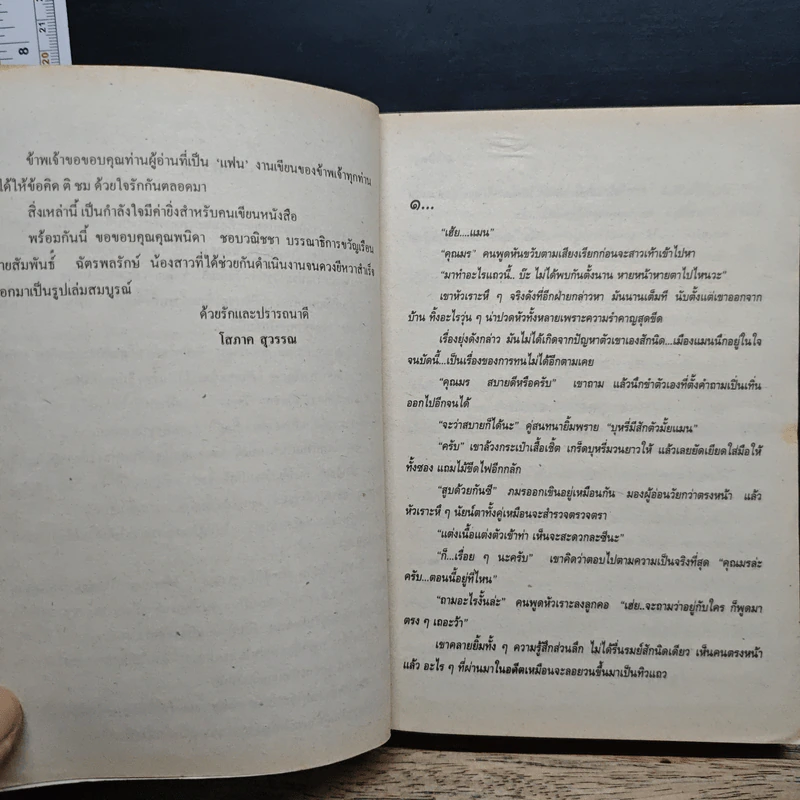 8
21
20
ข้าพเจ้าขอขอบคุณท่านผู้อ่านที่เป็น 'แฟน' งานเขียนของข้าพเจ้าทุกท่าน
ได้ให้ข้อคิด ติ ชม ด้วยใจรักกันตลอดมา
สิ่งเหล่านี้ เป็นกำลังใจมีค่ายิ่งสำหรับคนเขียนหนังสือ
พร้อมกันนี้ ขอขอบคุณคุณพนิดา ชอบวณิชชา บรรณาธิการขวัญเรือน
ายสัมพันธ์ ฉัตรพลรักษ์ น้องสาวที่ได้ช่วยกันดำเนินงานจนดวงยีหวาสำเร็จ
อกมาเป็นรูปเล่มสมบูรณ์
ด้วยรักและปรารถนาดี
โสภาค สุวรรณ
๑...
"เฮ้ย....แมน"
"คุณมร" คนพูดหันขวับตามเสียงเรียกก่อนจะสาวเท้าเข้าไปหา
"มาทำอะไรแถวนี้.. บ๊ะ ไม่ได้พบกันตั้งนาน หายหน้าหายตาไปไหนวะ"
เขาหัวเราะหึ ๆ จริงดังที่อีกฝ่ายกล่าวหา มันนานเต็มที นับตั้งแต่เขาออกจาก
บ้าน ทิ้งอะไรวุ่น ๆ น่าปวดหัวทั้งหลายเพราะความรำคาญสุดขีด
เรื่องยุ่งดังกล่าว มันไม่ได้เกิดจากปัญหาตัวเขาเองสักนิด...เมืองแมนนึกอยู่ในใจ
จนบัดนี้...เป็นเรื่องของการทนไม่ได้อีกตามเคย
"คุณมร สบายดีหรือครับ" เขาถาม แล้วนึกขำตัวเองที่ตั้งคำถามเป็นเท่น
ออกไปอีกจนได้
"จะว่าสบายก็ได้นะ" คู่สนทนายิ้มพราย "บุหรี่มีสักตัวมั้ยแมน"
"ครับ" เขาล้วงกระเป๋าเสื้อเชิ้ต เกร็ดบุหรี่มวนยาวให้ แล้วเลยยัดเยียดใส่มือให้
ทั้งซอง แถมไม้ขีดไฟอีกกลัก
"สูบด้วยกันซี" ภมรออกเขินอยู่เหมือนกัน มองผู้อ่อนวัยกว่าตรงหน้า แล้ว
หัวเราะหึ ๆ นัยน์ตาทั้งคู่เหมือนจะสำรวจตรวจตรา
"แต่งเนื้อแต่งตัวเข้าท่า เห็นจะสะดวกละซีนะ"
"ก็...เรื่อย ๆ นะครับ" เขาคิดว่าตอบไปตามความเป็นจริงที่สุด "คุณมรล่ะ
ครับ...ตอนนี้อยู่ที่ไหน"
"ถามอะไรงั้นล่ะ" คนพูดหัวเราะลงลูกคอ "เฮ่ย..จะถามว่าอยู่กับใคร ก็พูดมา
ตรง ๆ เถอะว้า"
เขาคลายยิ้มทั้ง ๆ ความรู้สึกส่วนลึก ไม่ได้รื่นรมย์สักนิดเดียว เห็นคนตรงหน้า
แล้ว อะไร ๆ ที่ผ่านมาในอดีตเหมือนจะลอยวนขึ้นมาเป็นทิวแถว